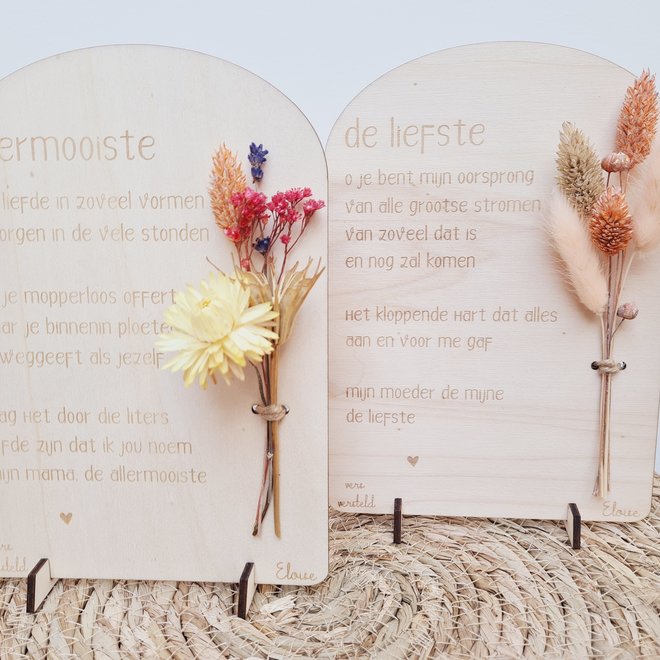 ermooiste
liefde in zoveel vormen
orgen in de vele stonden
je mopperloos offert
ar je binnenin ploet
weggeeft als jezelf
ag het door die liters
fde zijn dat ik jou noem
ijn mama, de allermooiste
ersteld
Eloise
de liefste
o je bent mijn oorsprong
van alle grootse stromen
van zoveel dat is
en nog zal komen
het kloppende hart dat alles
aan en voor me gaf
mijn moeder de mijne
de liefste
vers
versteld
Eloise